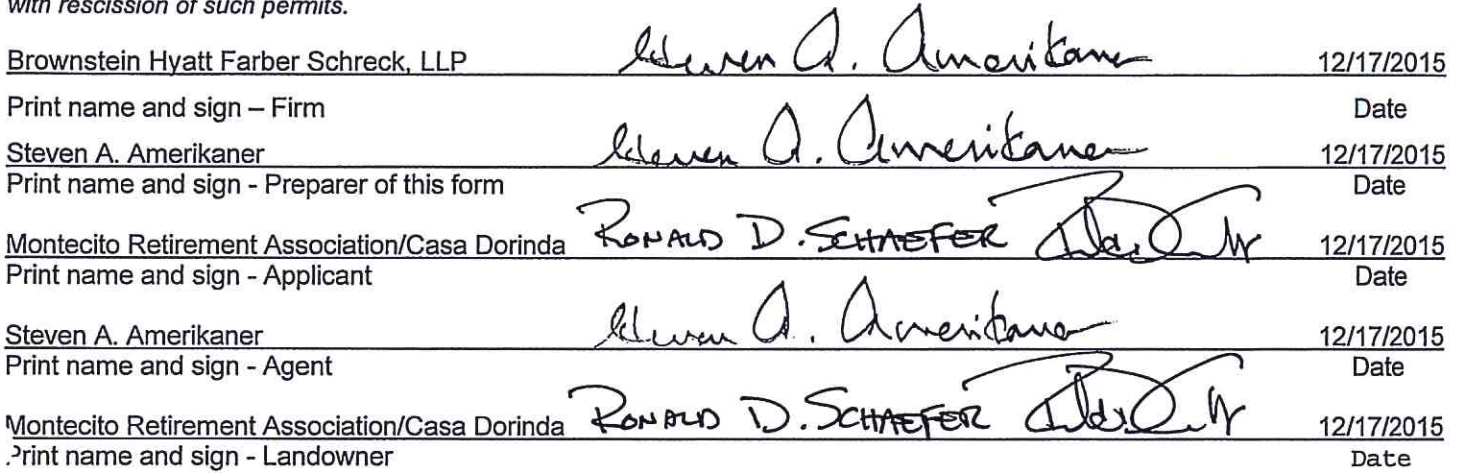 with rescission of such permits.
Brownstein Hyatt Farber Schreck, LLP Steven A. Amerikaner 12/17/2015
Print name and sign – Firm Date
Steven A. Amerikaner Steven A. Amerikaner 12/17/2015
Print name and sign - Preparer of this form Date
Montecito Retirement Association/Casa Dorinda RONALD D. SCHAEFER 12/17/2015
Print name and sign - Applicant Date
Steven A. Amerikaner Steven A. Amerikaner 12/17/2015
Print name and sign - Agent Date
Montecito Retirement Association/Casa Dorinda RONALD D. SCHAEFER 12/17/2015
Print name and sign - Landowner Date